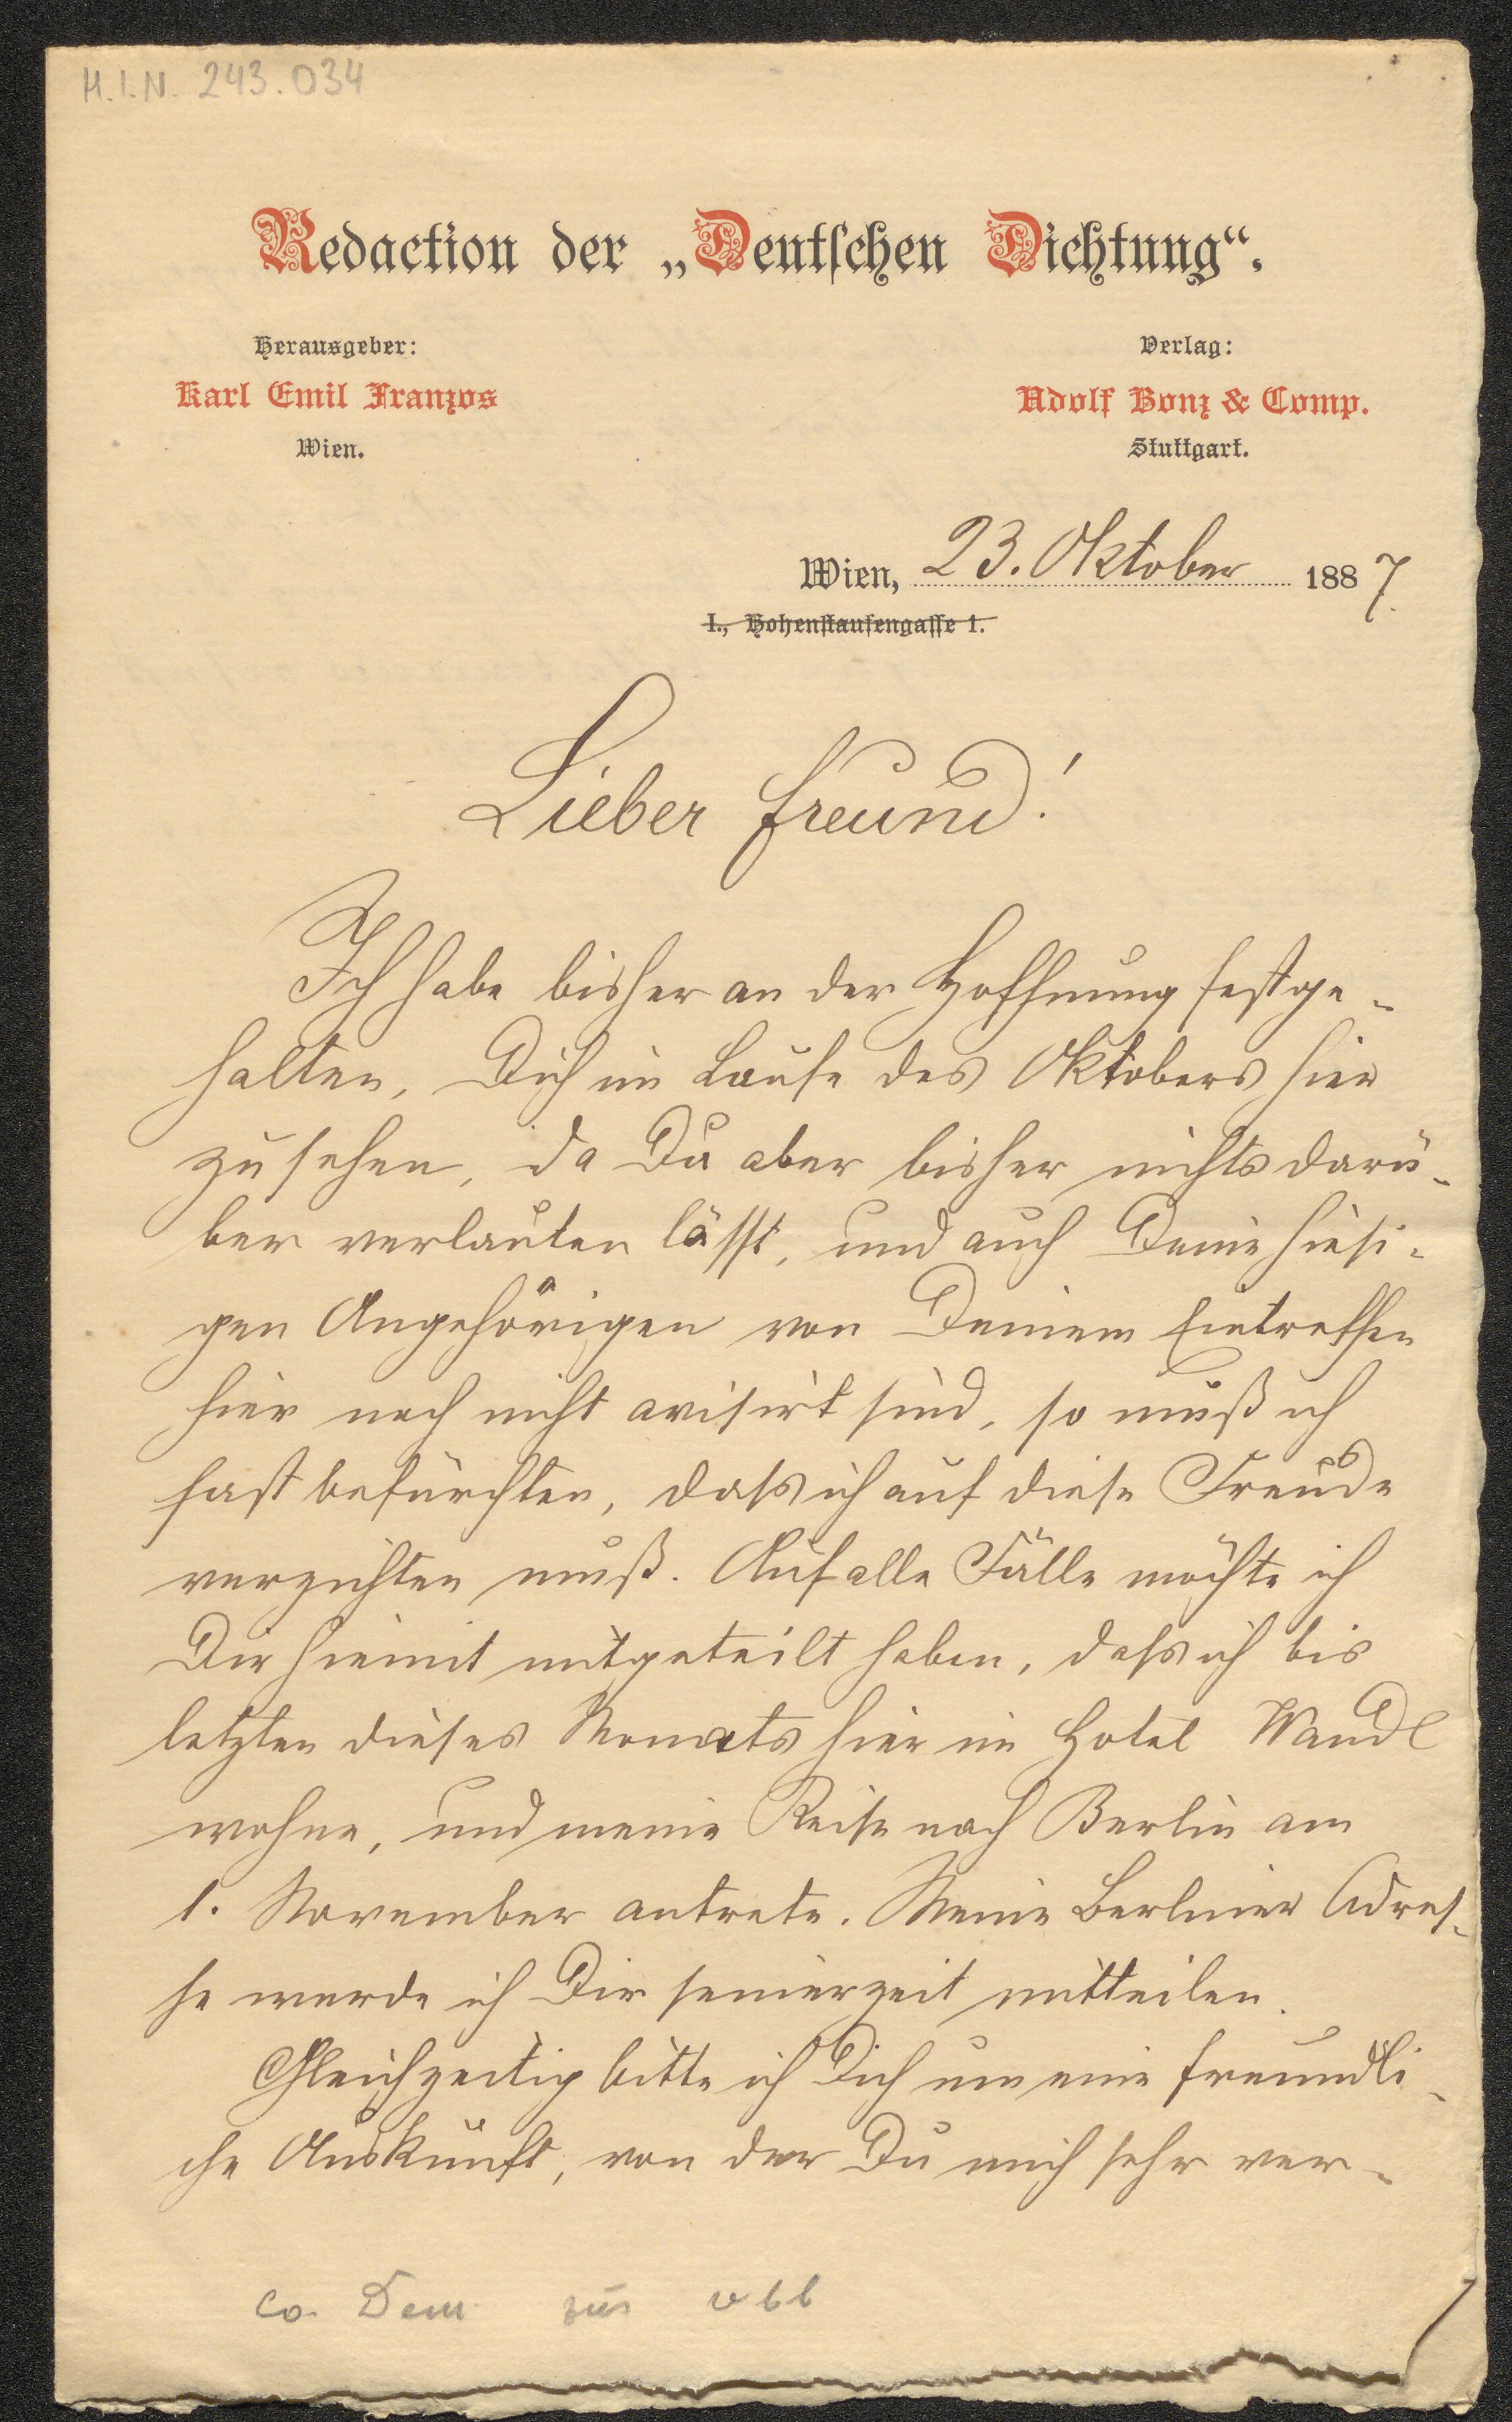 H.I.N. 243.034
Redaction der „Deutschen Dichtung“.
Herausgeber:
Karl Emil Franzos
Wien.
Verlag:
Adolf Bonz & Comp.
Stuttgart.
Wien, 23. Oktober 1887
I., Hohenstaufengasse 1.
Lieber Freund!
Ich habe bisher an der Hoffnung festge-
halten, Dich im Laufe des Oktobers hier
zu sehen, da Du aber bisher nichts darü-
ber verlauten lässt, und auch Deine hiesi-
gen Angehörigen von Deinem Eintreffen
hier noch nicht avisirt sind, so muß ich
fast befürchten, dass ich auf diese Freude
verzichten muß. Auf alle Fälle möchte ich
Dir hiemit mitgeteilt haben, dass ich bis
letzten dieses Monats hier im Hotel Wandl
wohne, und meine Reise nach Berlin am
1. November antrete. Meine Berliner Adres-
se werde ich Dir seinerzeit mitteilen.
Gleichzeitig bitte ich Dich um eine freundli-
che Auskunft, von der Du mich sehr ver-